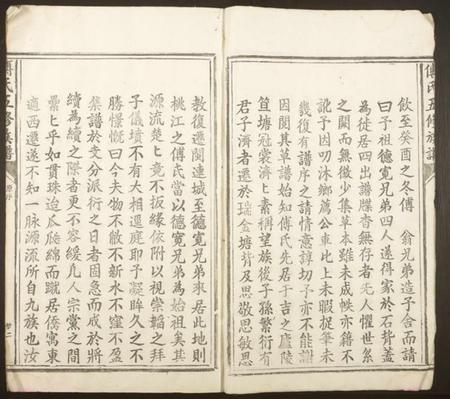 傅氏五修族譜
飲至癸酉之冬傅 翁兄弟造予舍而請
曰予祖德寬兄弟四人遂得家於石背蓋
為徒居四出譜牒杳無存者先人懼世系
之闕而無徵少集草本雖未成帙亦籍不
訛予因叨沐鄉薦公車北上未暇捉筆未
幾復有譜序之請情意諄切予亦不能謝
因閱其草譜始知傅氏先居于吉之廬陵
筥塘冠裳濟匕素稱望族後子孫繁衍有
君子濟者遷於瑞金塘背及思敬思敏思
教復遷閩連城至德寬兄弟來居此地則
桃江之傅氏當以德寬兄弟為始祖矣其
源流焚匕竟不扳緣依附以視崇韜之拜
子儀墳不有大相逕庭耶予凝眸久之不
勝憬慨曰今夫物不敝不新水不窪不盈
集譜於支分派衍之日者固急而成於將
續為續之際者更不容緩凢人宗黨之間
纍匕乎如貫珠迨瓜瓞綿而蹴居僑寓東
適西遷遂不知一脉源流所自九族也汝
傅氏五修族譜
原序